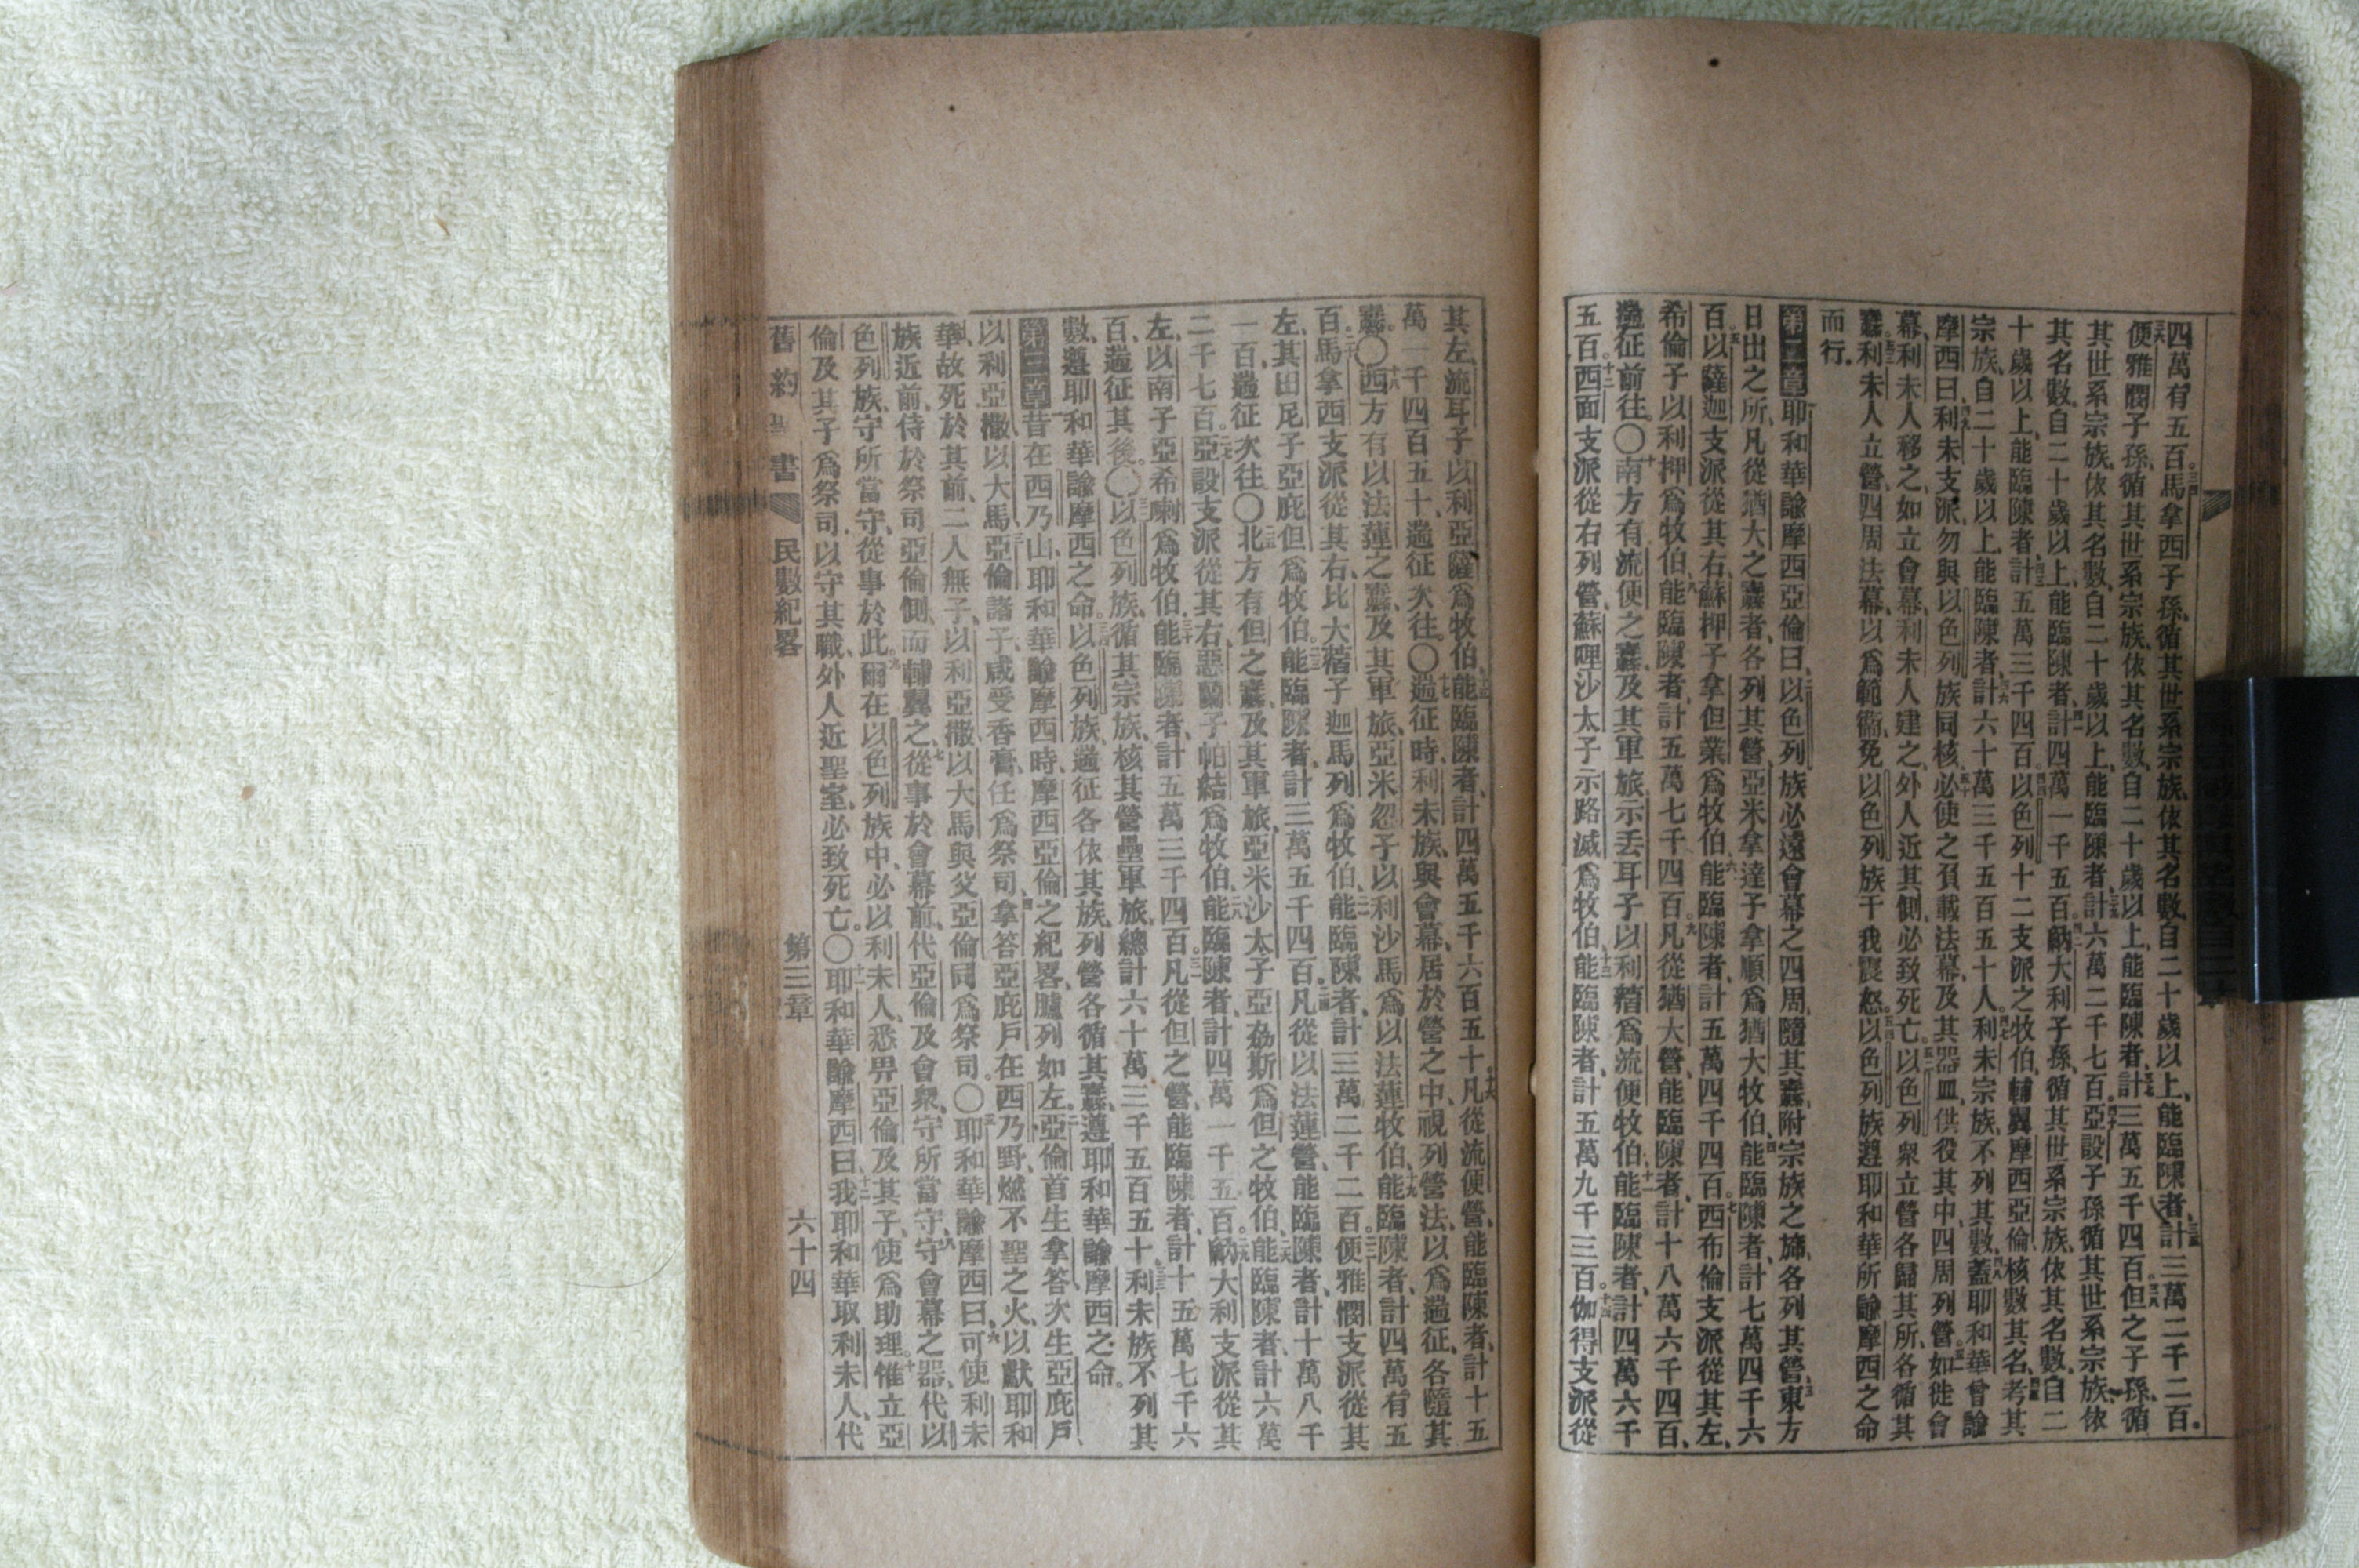 四萬有五百馬拿西子孫循其世系宗族依其名數自二十歲以上能臨陳者計三萬二千二百
便雅憫子孫循其世系宗族依其名數自二十歲以上能臨陳者計三萬五千四百但之子孫循
其世系宗族依其名數自二十歲以上能臨陳者計六萬二千七百亞設子孫循其世系宗族依
其名數自二十歲以上能臨陳者計四萬一千五百納大利子孫循其世系宗族依其名數自二
十歲以上能臨陳者計五萬三千四百以色列十二支派之牧伯輔翼摩西亞倫核數其名考其
宗族自二十歲以上能臨陳者計六十萬三千五百五十人利未宗族不列其數蓋耶和華曾諭
摩西曰利未支派勿與以色列族同核必使之負載法幕及其器皿供役其中四周列營如徙會
幕利未人移之如立會幕利未人建之外人近其側必致死亡以色列衆立營各歸其所各循其
纛利未人立營四周法幕以爲範衞免以色列族干我震怒以色列族遵耶和華所諭摩西之命
而行
第二章耶和華諭摩西亞倫曰以色列族必遠會幕之四周隨其纛附宗族之旆各列其營東方
日出之所凡從猶大之纛者各列其營亞米拿達子拿順爲猶大牧伯能臨陳者計七萬四千六
百以薩迦支派從其右蘇押子拿但業爲牧伯能臨陳者計五萬四千四百西布倫支派從其左
希倫子以利押爲牧伯能臨陳者計五萬七千四百凡從猶大營能臨陳者計十八萬六千四百
遄征前往〇南方有流便之纛及其軍旅示丟耳子以利蓿爲流便牧伯能臨陳者計四萬六千
五百西面支派從右列營蘇哩沙太子示路滅爲牧伯能臨陳者計五萬九千三百伽得支派從
其左流耳子以利亞薩爲牧伯能臨陳者計四萬五千六百五十凡從流便營能臨陳者計十五
萬一千四百五十遄征次往〇遄征時利未族與會幕居於營之中視列營法以爲遄征各隨其
纛〇西方有以法蓮之纛及其軍旅亞米忽子以利沙馬爲以法蓮牧伯能臨陳者計四萬有五
百馬拿西支派從其右比大蓿子迦馬列爲牧伯能臨陳者計三萬二千二百便雅憫支派從其
左其田尼子亞庇但爲牧伯能臨陳者計三萬五千四百凡從以法蓮營能臨陳者計十萬八千
一百遄征次往〇北方有但之纛及其軍旅亞米沙太子亞希斯爲但之牧伯能臨陳者計六萬
二千七百亞設支派從其右惡蘭子帕結爲牧伯能臨陳者計四萬一千五百納大利支派從其
左以南子亞希喇爲牧伯能臨陳者計五萬三千四百凡從但之營能臨陳者計十五萬七千六
百遄征其後〇以色列族循其宗族核其營壘軍旅總計六十萬三千五百五十利未族不列其
數遵耶和華諭摩西之命以色列族遄征各依其族列營各循其纛遵耶和華諭摩西之命
第三章昔在西乃山耶和華諭摩西時摩西亞倫之紀畧臚列如左亞倫首生拿答次生亞庇戶
以利亞撒以大馬亞倫諸子咸受香膏任爲祭司拿答亞庇戶在西乃野燃不聖之火以獻耶和
華故死於其前二人無子以利亞撒以大馬與父亞倫同爲祭司〇耶和華諭摩西曰可使利未
族近前侍於祭司亞倫側而輔翼之從事於會幕前代亞倫及會衆守所當守守會幕之器代以
色列族守所當守從事於此爾在以色列族中必以利未人悉畀亞倫及其子使爲助理惟立亞
倫及其子爲祭司以守其職外人近聖室必致死亡〇耶和華諭摩西曰我耶和華取利未人代
舊約聖書 民數紀畧 第三章 六十四